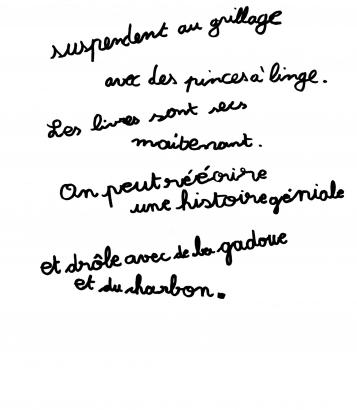 suspendent au grillage
avec des pinces à linge.
Les livres sont secs
maitenant.
On peut réécrire
une histoire géniale
et drôle avec de la gadoue
et du charbon.